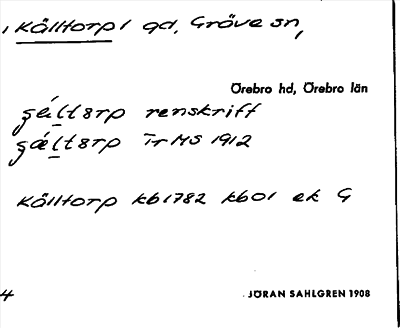 , Källtorp / gd, Gräve sn,
Örebro hd, Örebro län
şältərp renskrift
şæltərp Tr MS 1912
Källtorp kb1782 kb01 ek G
4
JÖRAN SAHLGREN 1908